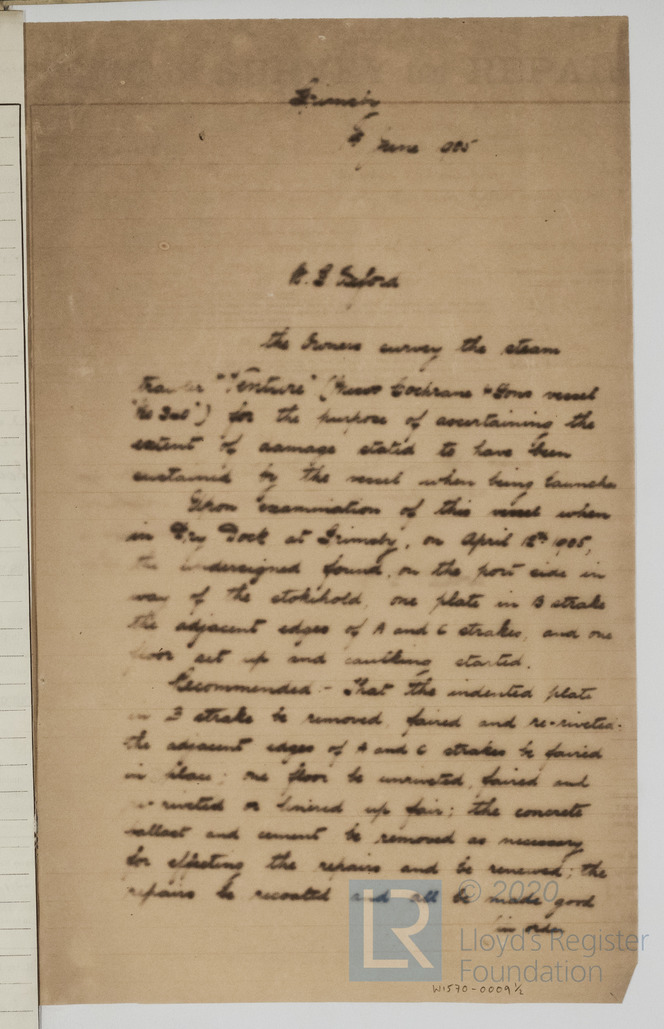 Grimsby
June 1905
the Owners survey the steam
trawler "Venture" (Messrs Cochrane & Sons vessel
for the purpose of ascertaining the
extent of damage stated to have been
sustained by the vessel when being launched
Upon examination of this vessel when
in Dry Dock at Grimsby, on April 12th 1905,
the undersigned found, on the port side in
way of the stokehold, one plate in B strake
the adjacent edges of A and C strakes, and one
floor set up and caulking started.
Recommended:- That the indented plate
in B strake be removed, faired and re-riveted.
the adjacent edges of A and C strakes be faired
in place; one floor be unriveted, faired and
re-riveted or linered up fair; the concrete
ballast and cement be removed as necessary
for effecting the repairs and be renewed; the
repairs be recoated and all be made good
in order
LR
© 2020
Lloyd's Register
Foundation
W1570-0009 1/2